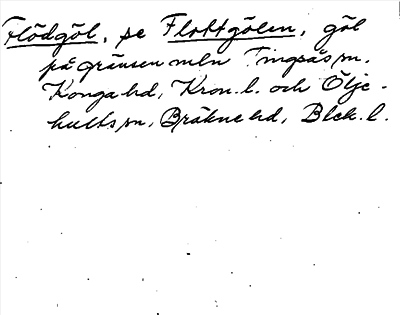 Flödgöl, se Flottgölen, göl
på gränsen mln Tingsås sn,
Konga hd, Kron. l. och Ölje-
hults sn, Bräkne hd, Blek. l.